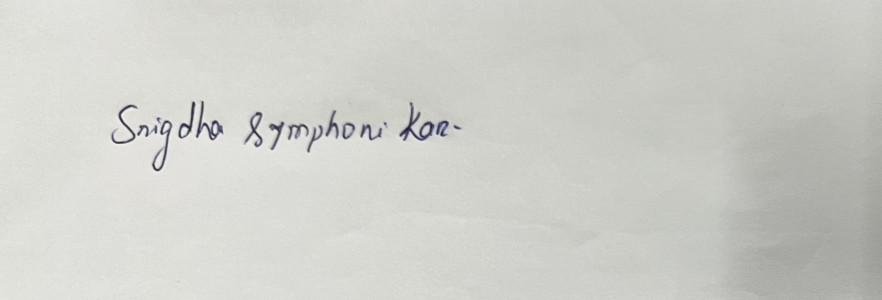 Snigdha Symphoni Kar-